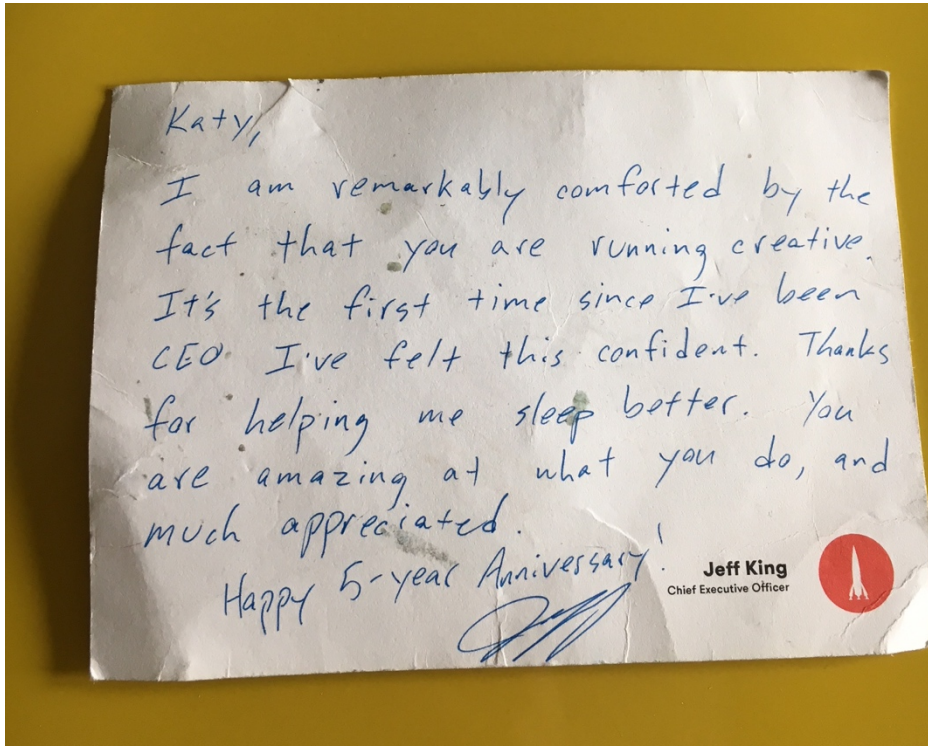 Katy,
I am remarkably comforted by the
fact that you are running creative.
It's the first time since I've been
CEO I've felt this confident. Thanks
for helping me sleep better. You
are amazing at what you do, and
much appreciated.
Happy 5-year Anniversary!
Jeff King
Chief Executive Officer